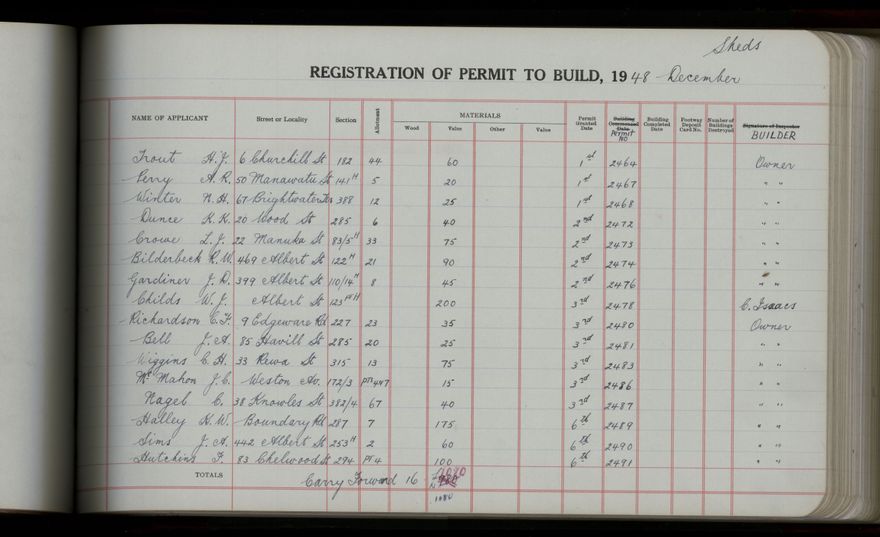 Sheds
REGISTRATION OF PERMIT TO BUILD, 1948 - December
NAME OF APPLICANT Street or Locality Section Allotment MATERIALS Wood Value Other Value Permit Granted Date Building Commenced Date Permit No Building Completed Date Footway Deposit Card No. Number of Buildings Destroyed Signature of Inspector BUILDER
Trout H.J. 6 Churchill St 182 44 60 1st 2464 Owner
Perry A.R. 50 Manawatu St 141H 5 20 1st 2467 " "
Winter N.H. 67 Brightwater Ter 388 12 25 1st 2468 " "
Dunce K.K. 20 Wood St 285 6 40 2nd 2472 " "
Crowe L.J. 22 Manuka St 83/5H 33 75 2nd 2473 " "
Bilderbeck R.W. 469 Albert St 122H 21 90 2nd 2474 " "
Gardiner J.D. 399 Albert St 110/14H 8 45 2nd 2476 " "
Childs W.J. Albert St 123PtH 200 3rd 2478 C. Isaacs
Richardson C.F. 9 Edgeware Rd 227 23 35 3rd 2480 Owner
Bell J.A. 85 Havill St 285 20 25 3rd 2481 " "
Wiggins C.H. 33 Rewa St 315 13 75 3rd 2483 " "
McMahon J.C. Weston Av. 172/3 15 3rd 2486 " "
Nageb C. 38 Knowles St 382/4 67 40 3rd 2487 " "
Halley K.W. Boundary Rd 287 7 175 6th 2489 " "
Sims J.A. 442 Albert St 253H 2 60 6th 2490 " "
Hutchins F. 83 Chelwood St 294 Pt 4 100 6th 2491 " "
TOTALS Carry Forward 16 - 1080
1080